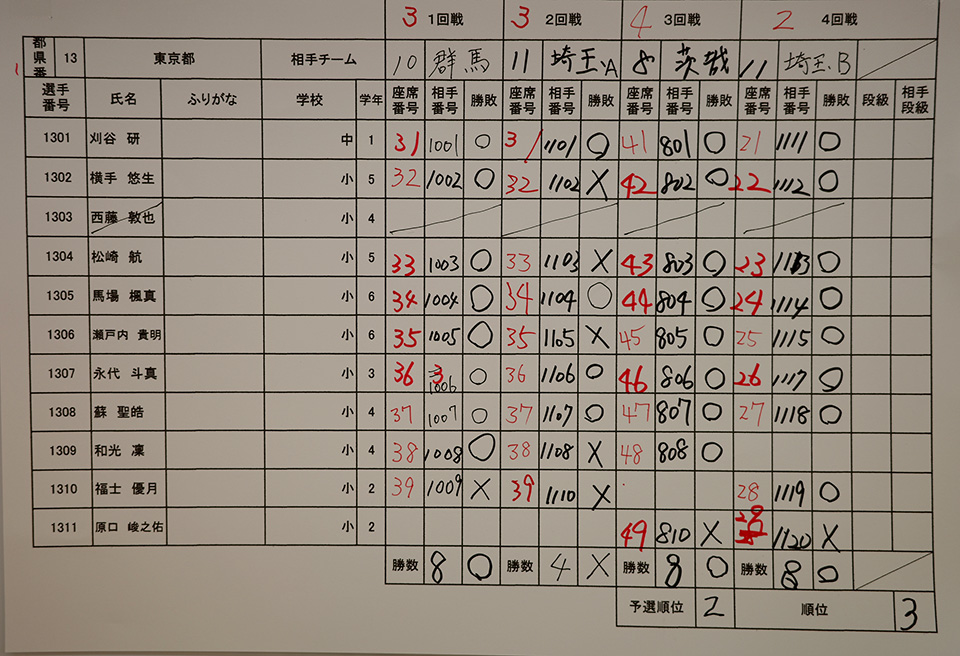 3 1回戦 3 2回戦 4 3回戦 2 4回戦
1 都県番 13 東京都 相手チーム 10 群馬 11 埼玉A 8 茨城 11 埼玉B
選手番号 氏名 ふりがな 学校 学年 座席番号 相手番号 勝敗 座席番号 相手番号 勝敗 座席番号 相手番号 勝敗 座席番号 相手番号 勝敗 段級 相手段級
1301 刈谷 研 中 1 31 1001 ○ 31 1101 ○ 41 801 ○ 21 1111 ○
1302 横手 悠生 小 5 32 1002 ○ 32 1102 × 42 802 ○ 22 1112 ○
1303 西藤 敦也 小 4
1304 松崎 航 小 5 33 1003 ○ 33 1103 × 43 803 ○ 23 1113 ○
1305 馬場 楓真 小 6 34 1004 ○ 34 1104 ○ 44 804 ○ 24 1114 ○
1306 瀬戸内 貴明 小 6 35 1005 ○ 35 1105 × 45 805 ○ 25 1115 ○
1307 永代 斗真 小 3 36 1006 ○ 36 1106 ○ 46 806 ○ 26 1117 ○
1308 蘇 聖皓 小 4 37 1007 ○ 37 1107 ○ 47 807 ○ 27 1118 ○
1309 和光 凜 小 4 38 1008 ○ 38 1108 × 48 808 ○
1310 福士 優月 小 2 39 1009 × 39 1110 × 28 1119 ○
1311 原口 峻之佑 小 2 49 810 × 29 1120 ×
勝数 8 ○ 勝数 4 × 勝数 8 ○ 勝数 8 ○
予選順位 2 順位 3